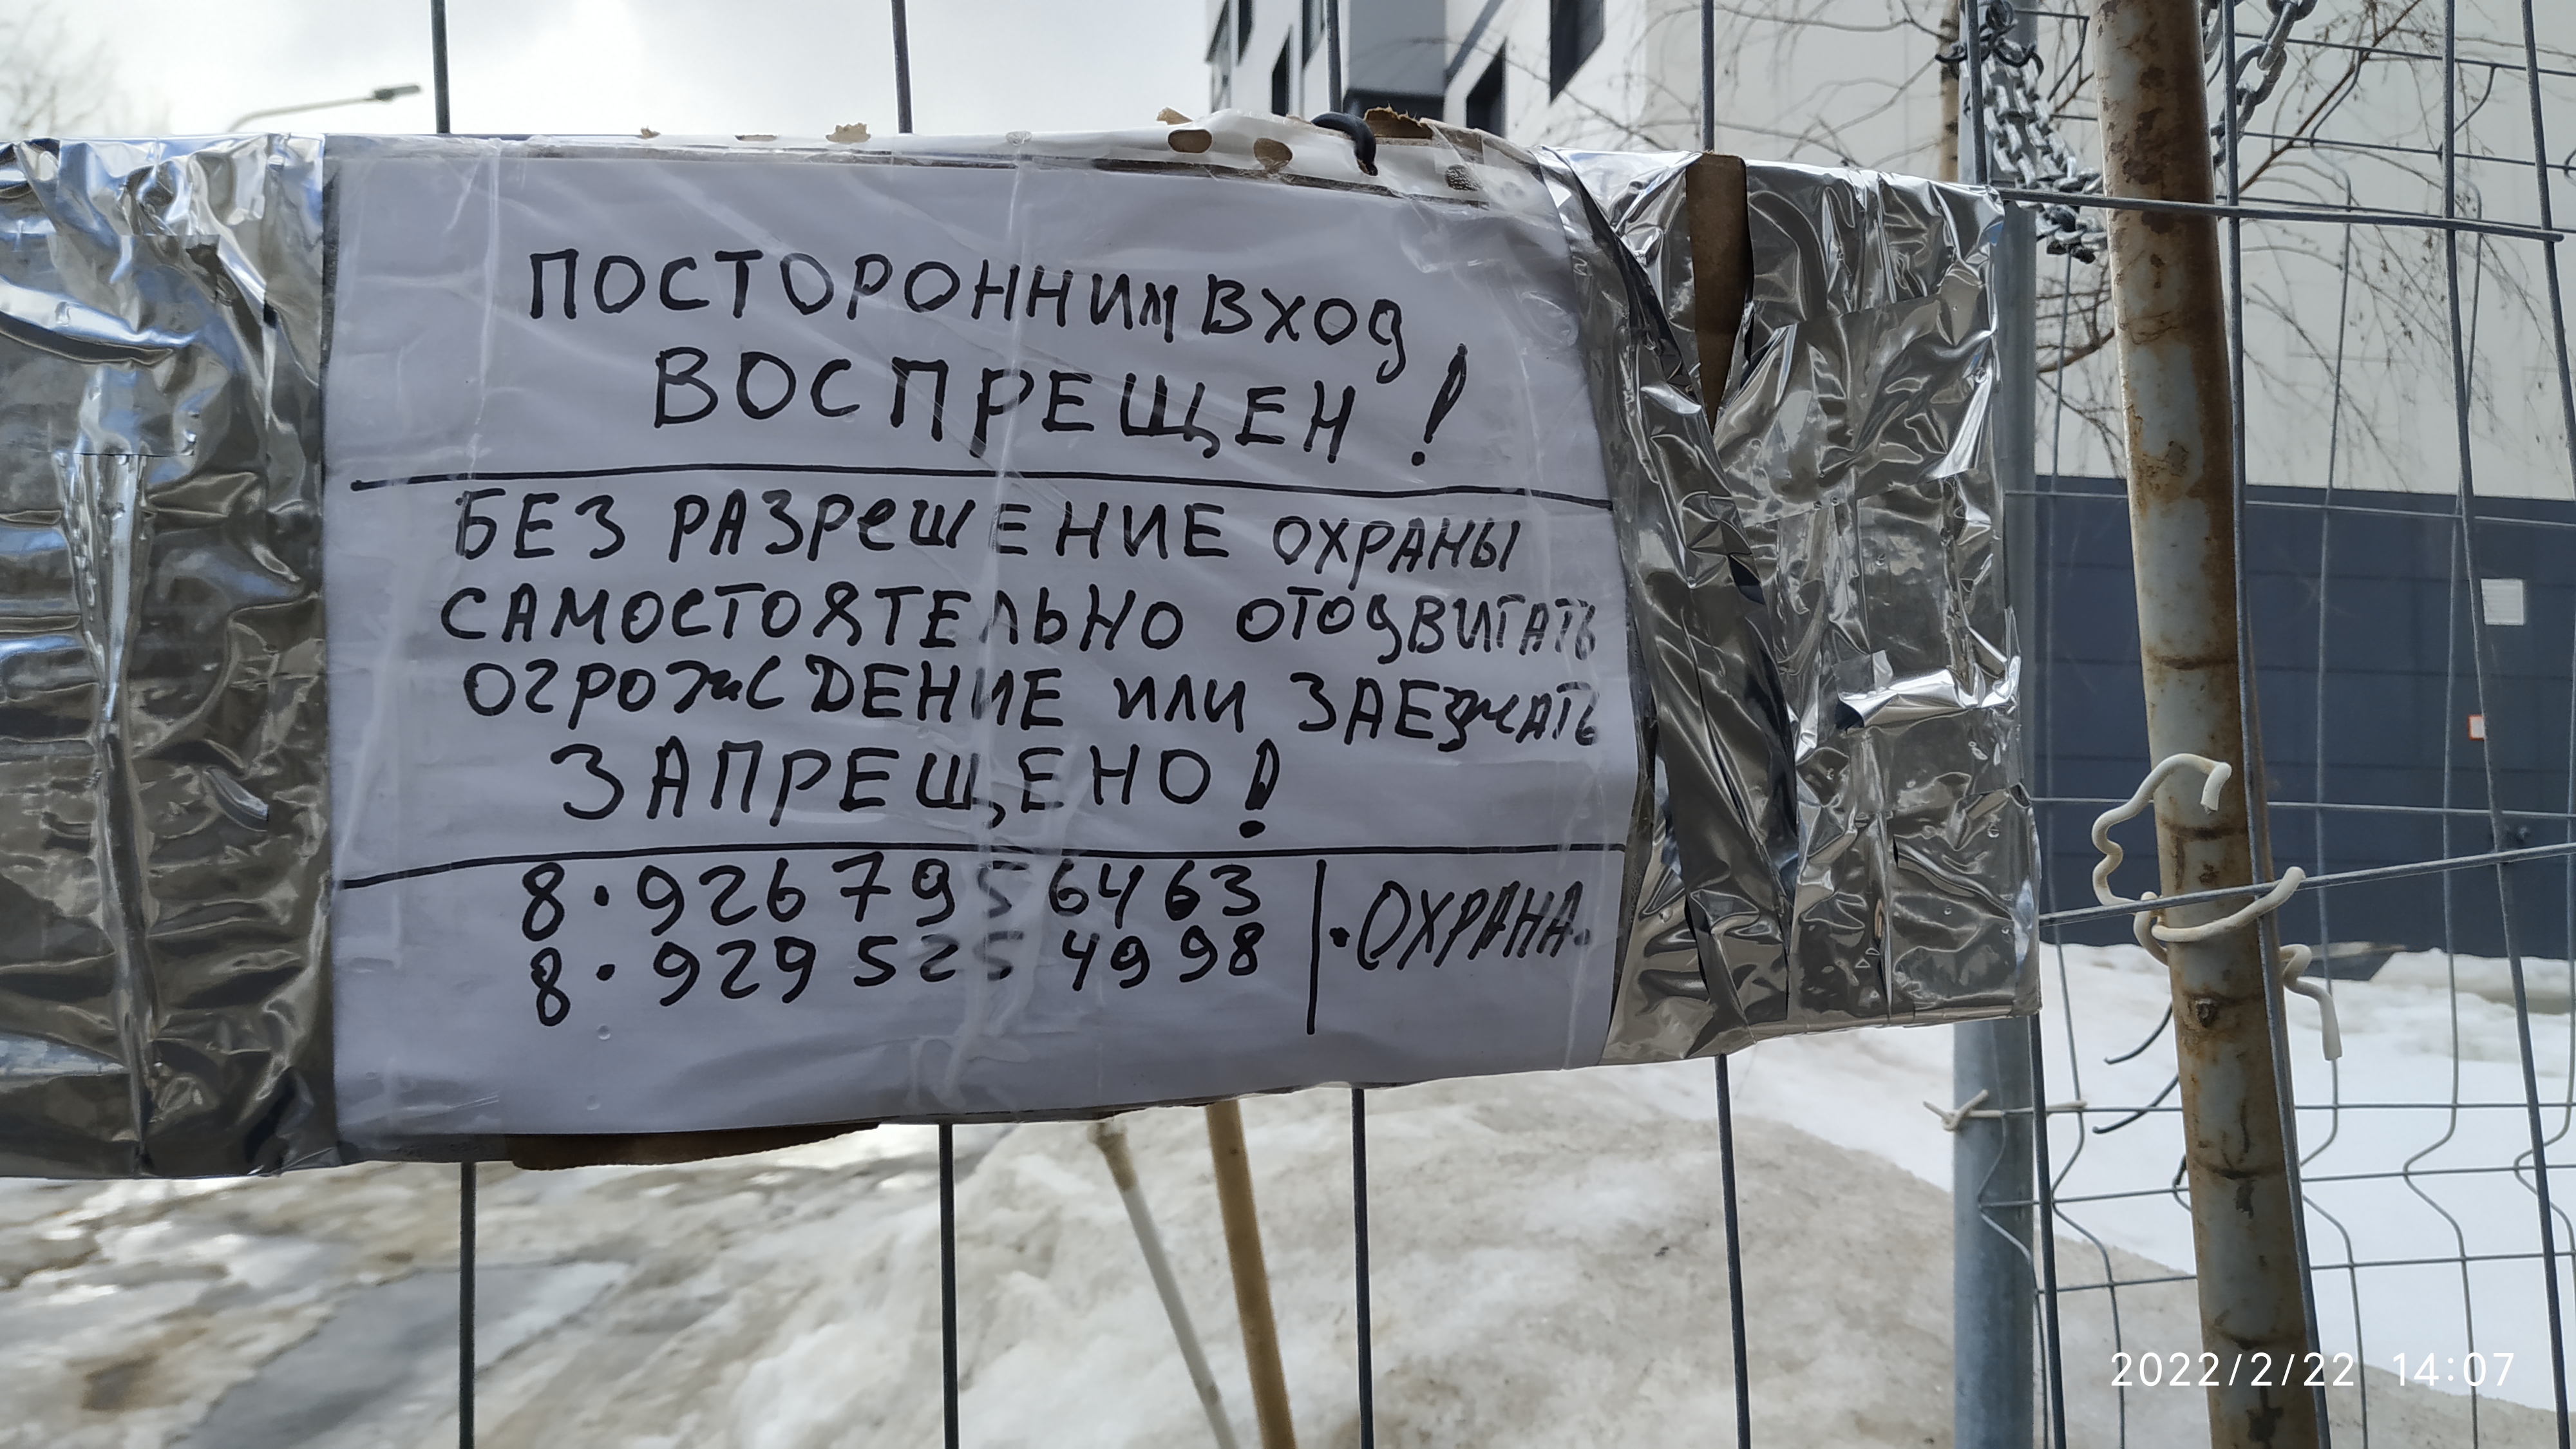 ПОСТОРОННИМ ВХОД
ВОСПРЕЩЕН!
БЕЗ РАЗРЕШЕНИЕ ОХРАНЫ
САМОСТОЯТЕЛЬНО ОТОДВИГАТЬ
ОГРОЖДЕНИЕ ИЛИ ЗАЕЗЖАТЬ
ЗАПРЕЩЕНО!
8·926 795 64 63
8·929 525 49 98
·ОХРАНА·
2022/2/22 14:07